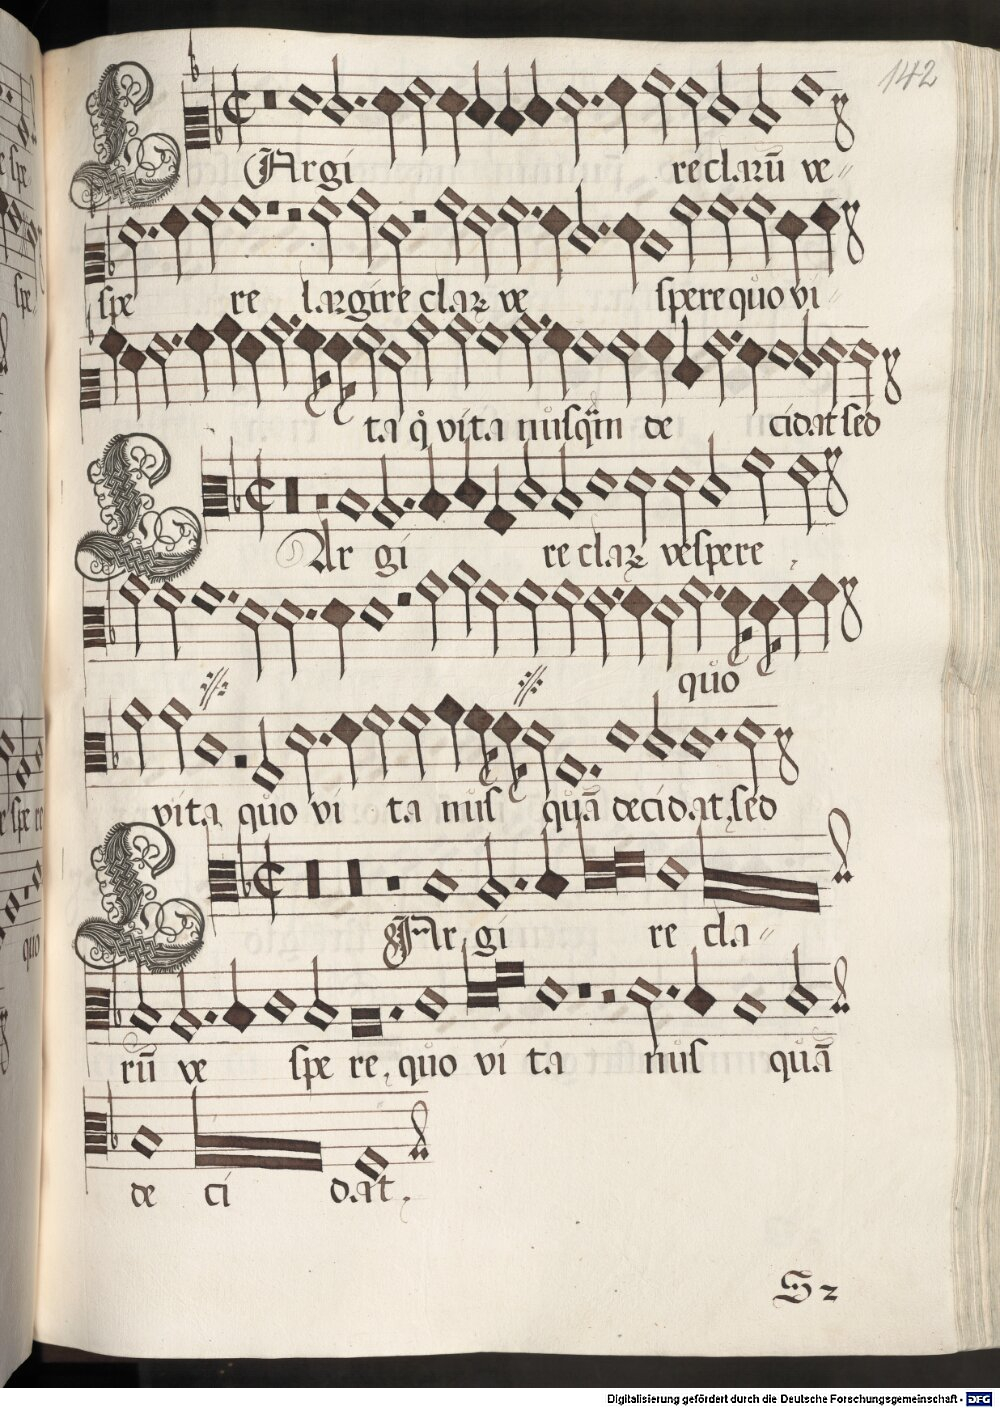 142
LArgi re clarū ve
spe re largire claꝝ ve spere quo vi
ta ꝙ vita nusq̈m de cidat sed
LAr gi re claꝝ vespere
quo
vita quo vi ta nus quā decidat, sed
LAr gi re cla
rū ve spe re, quo vi ta nus quā
de ci dat.
S2
Digitalisierung gefördert durch die Deutsche Forschungsgemeinschaft - DFG